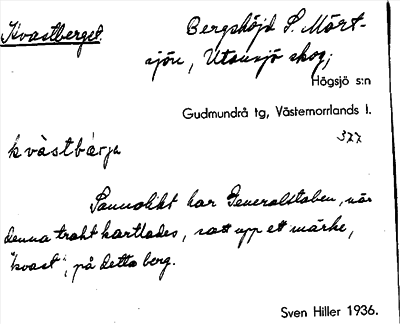 Kvastberget.
Bergshöjd S. Mört-
sjön, Utansjö skog;
Högsjö s:n
Gudmundrå tg, Västernorrlands l.
377
kvàstbárja
Sannolikt har Generalstaben, när
denna trakt kartlades, satt upp ett märke,
"kvast", på detta berg.
Sven Hiller 1936.